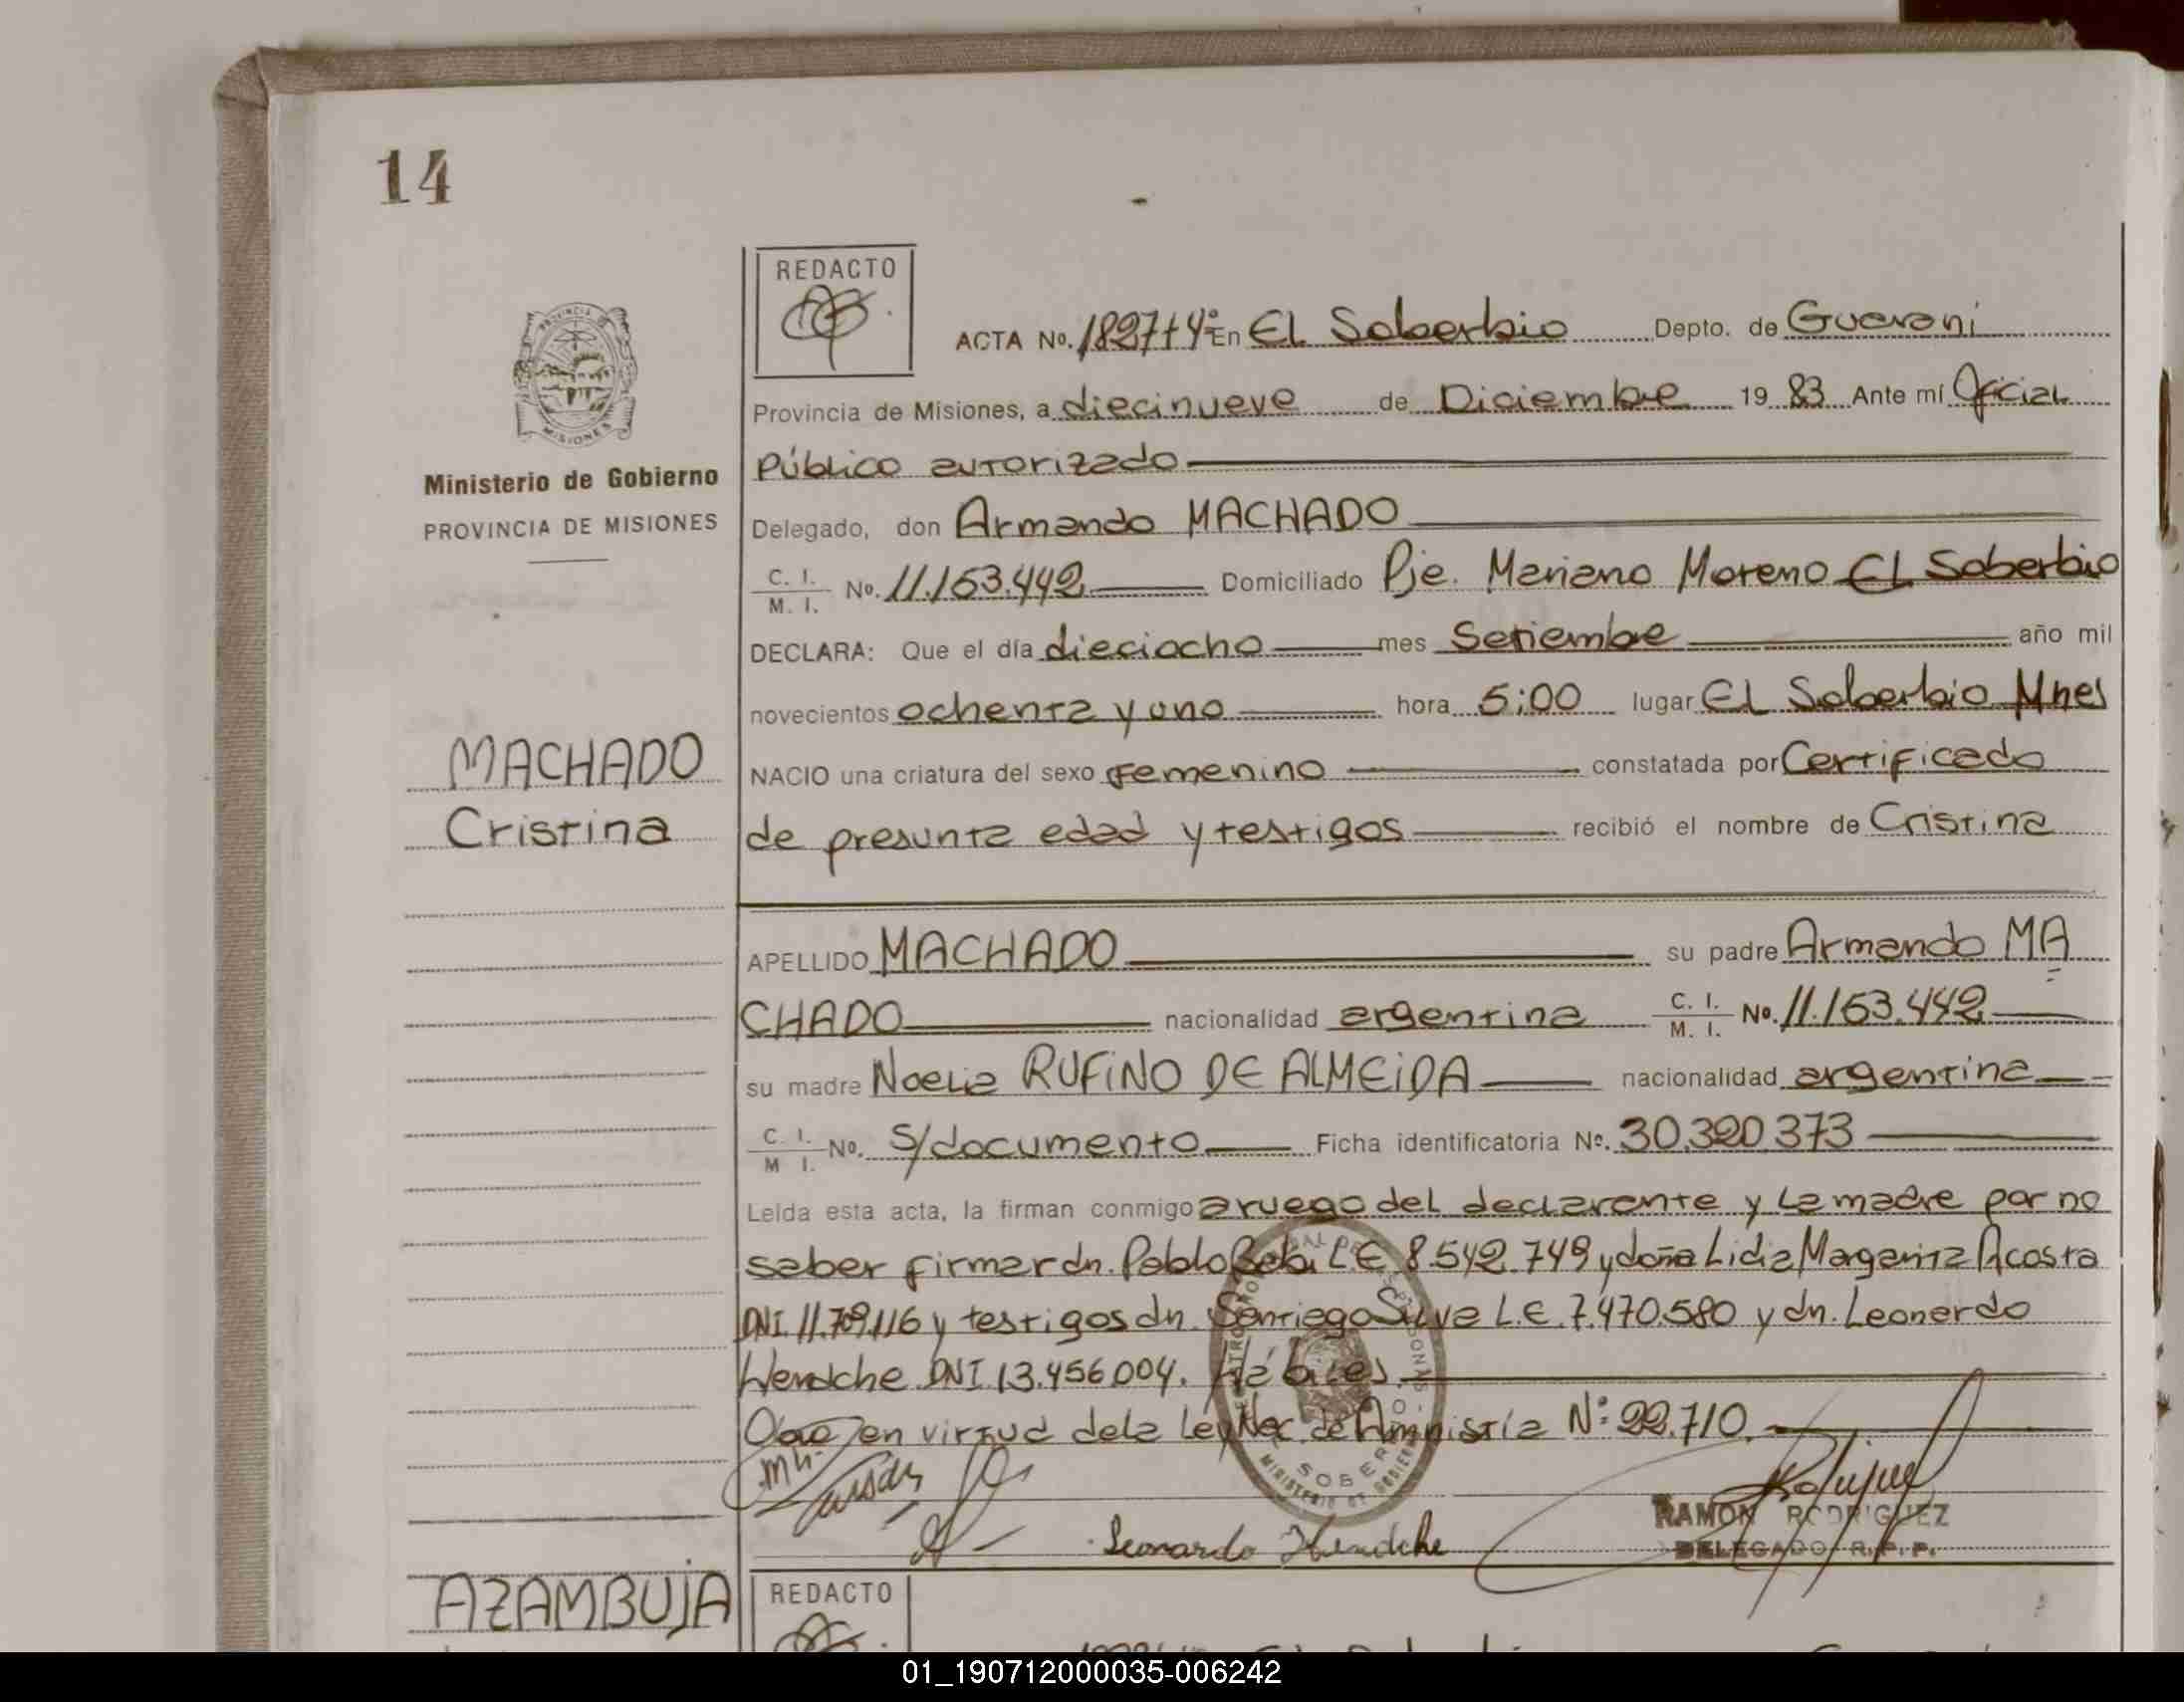 14
REDACTO
ACTA No. 1827 t 4° En El Soberbio Depto. de Guarani
Provincia de Misiones, a diecinueve de Diciembre 19 83 Ante mí Oficial
Público autorizado
PROVINCIA DE
MISIONES
Ministerio de Gobierno
PROVINCIA DE MISIONES
Delegado, don Armando MACHADO
C. I. / M. I. No. 11.153.442 Domiciliado Pje. Mariano Moreno El Soberbio
DECLARA: Que el día dieciocho mes Setiembre año mil
novecientos ochenta y uno hora 5:00 lugar El Soberbio Mnes
MACHADO
Cristina
NACIO una criatura del sexo Femenino constatada por Certificado
de presunta edad y testigos recibió el nombre de Cristina
APELLIDO MACHADO su padre Armando MA
CHADO nacionalidad argentina C. I. / M. I. No. 11.153.442
su madre Noelia RUFINO DE ALMEIDA nacionalidad argentina
C. I. / M I. No. S/documento Ficha identificatoria No. 30.320.373
Leida esta acta, la firman conmigo a ruego del declarante y la madre por no
saber firmar dn. Pablo L.E 8.542.749 y doña Lidia Margarita Acosta
DNI. 11.709.116 y testigos dn. Santiago Silva L.E. 7.470.580 y dn. Leonardo
Hendche DNI 13.456.004. Hábiles.
en virtud de la Ley Nac. de Amnistía N° 22.710.
SOBERBIO
MINISTERIO DE GOBIERNO
Leonardo Hendche
RAMON RODRIGUEZ
DELEGADO R. P. P.
AZAMBUJA
REDACTO
01_190712000035-006242